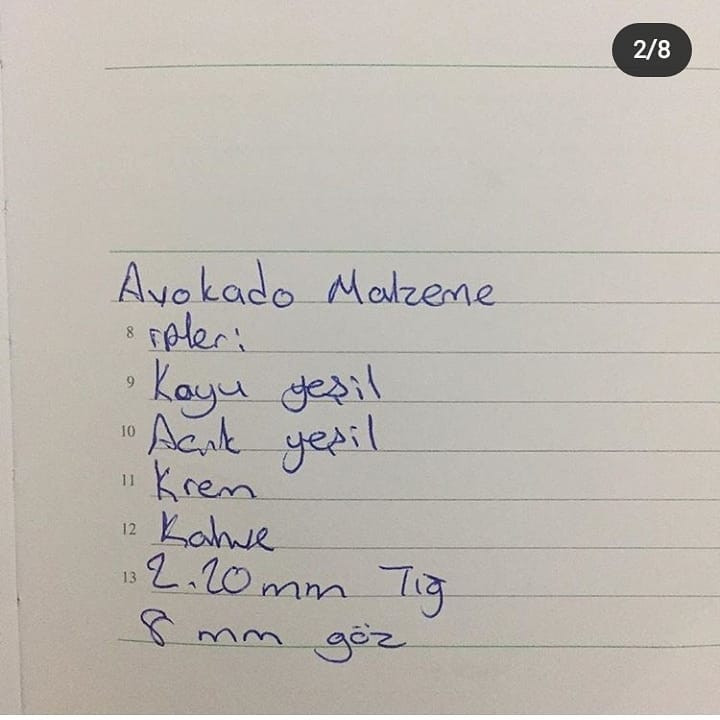 2/8
Avokado Malzeme
8 ipleri
9 Koyu yeşil
10 Açık yeşil
11 Krem
12 Kahve
13 2.20 mm Tığ
8 mm göz